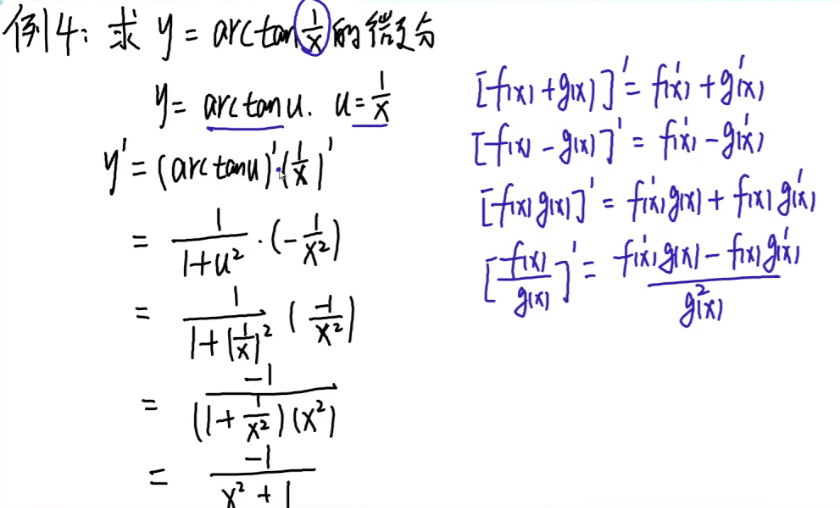 例4: 求 y = arctan 1/x 的微分
y = arctan u. u = 1/x
y' = (arctan u)'·(1/x)'
= 1/(1+u²) · (-1/x²)
= 1/(1+(1/x)²) (-1/x²)
= -1/((1+1/x²)(x²))
= -1/(x²+1)
[f(x)+g(x)]' = f'(x)+g'(x)
[f(x)-g(x)]' = f'(x)-g'(x)
[f(x)g(x)]' = f'(x)g(x)+f(x)g'(x)
[f(x)/g(x)]' = (f'(x)g(x)-f(x)g'(x))/g²(x)